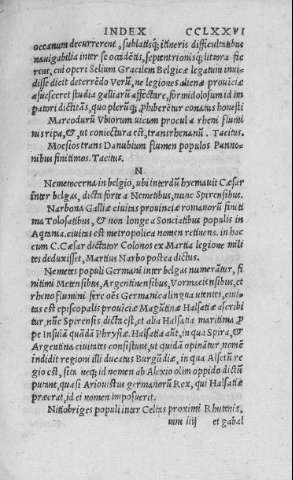 INDEX CCLXXVI
occanum decurrerent, sublatisq; itineris difficultatibus
nauigabilia inter se occidētis, septentrionisq; littora fie
rent, cui operi Selium Gracilem Belgicæ legatum inui-
disse dicit deterrēdo Verū, ne legiones alienæ prouiciæ
asuesceret studia galliarū affectare, formidolosum id im
patori dictitās, quo plerūq; phiberētur conatus honesti
Marcodurū Vbiorum vicum procul a rheni flumi
nis ripa, & ut coniectura est, transrhenanū. Tacitus.
Moesios trans Danubium flumen populos Panno-
nibus finitimos. Tacitus.
N
Nemetocerna in belgio, ubi interdū hyemauit Cæsar
inter belgas, dicta forte a Nemetibus, nunc Spirensibus.
Narbona Galliæ ciuius prouinciæ romanorū finiti
ma Tolosatibus, & non longe a Sonciatibus populis in
Aqtania, ciuius est metropolica nomen retinens. in hac
cum C. Cæsar dictator Colonos ex Martia legione mili
tes deduxisset, Martius Narbo postea dictus.
Nemetes populi Germani inter belgas numerātur, fi
nitimi Metensibus, Argentinensibus, Vormacensibus, et
rheno flumini fere oēs Germanica lingua utentes, ciui-
tas est episcopalis prouiciæ Magūtinæ Halsatiæ ascribi
tur, nūc Spirensis dicta est, et alia Halsatia maritima p
pe Insulā quādā Phrysiæ. Halsatia aūt, in qua Spira, &
Argentina ciuitates consistunt, ut quidā opinātur, nomē
indidit regioni illi ducatus Burgūdiæ, in qua Alsetū re
gio est, siue neq; id nomen ab Alexio olim oppido dictū
putant, quasi Ariouistus germanorū Rex, qui Halsatiæ
præerat, id ei nomen imposuerit.
Nitiobriges populi inter Celtas proximi Rhutenis,
mm iiij et gabal